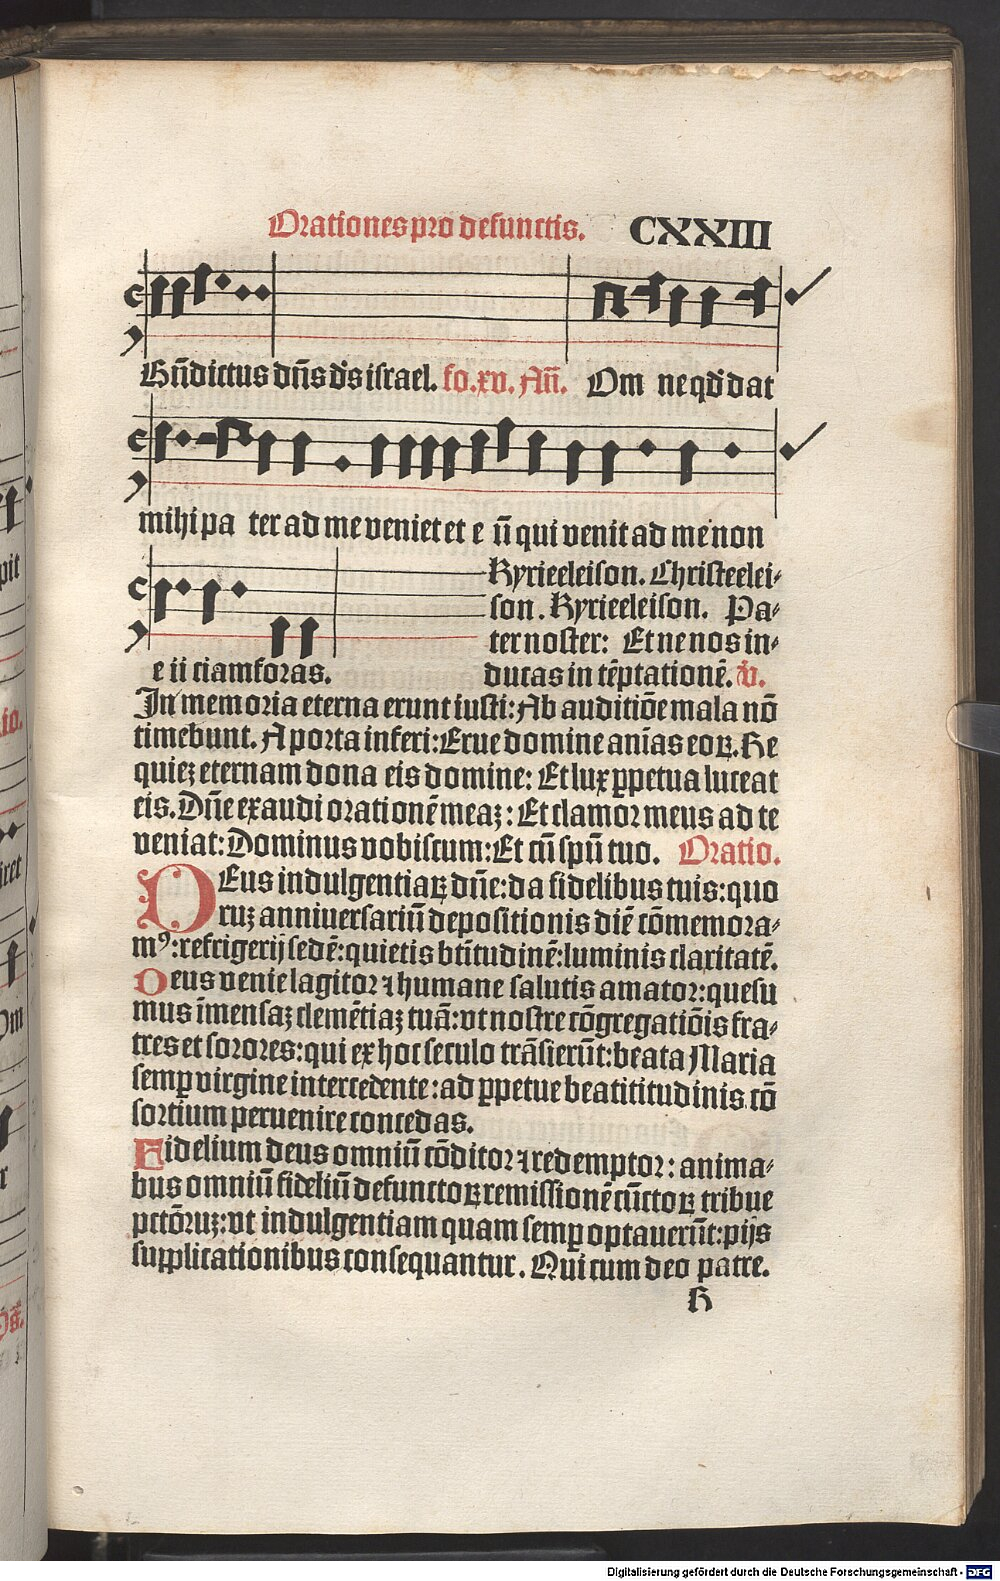 Orationes pro defunctis. CXXIII
Bn̄dictus dn̄s ds̄ israel. fo.xv. An̄. Om neqd̄ dat
mihi pa ter ad me veniet et e ū qui venit ad me non
e ii ciam foras.
Kyrieeleison. Christeelei⸗
son. Kyrieeleison. Pa⸗
ter noster: Et ne nos in⸗
ducas in tēptationē. v̄.
In memoria eterna erunt iusti: Ab auditiōe mala nō
timebunt. A porta inferi: Erue domine aīas eoꝝ. Re
quieꝫ eternam dona eis domine: Et lux ꝑpetua luceat
eis. Dn̄e exaudi orationē meaꝫ: Et clamor meus ad te
veniat: Dominus vobiscum: Et cū spū tuo. Oratio.
DEus indulgentiaꝝ dn̄e: da fidelibus tuis: quo
ruꝫ anniuersariū depositionis diē cōmemora⸗
mꝰ: refrigerij sedē: quietis btītudinē: luminis claritatē.
Deus venie lagitor ⁊ humane salutis amator: quesu
mus īmensaꝫ clemētiaꝫ tuā: vt nostre cōgregatiōis fra⸗
tres et sorores: qui ex hoc seculo trāsierūt: beata Maria
semꝑ virgine intercedente: ad ꝑpetue beatititudinis cō
sortium peruenire concedas.
Fidelium deus omniū cōditor ⁊ redemptor: anima⸗
bus omniū fideliū defunctoꝝ remissionē cūctoꝝ tribue
pctōruꝫ: vt indulgentiam quam semꝑ optauerūt: pijs
supplicationibus consequantur. Qui cum deo patre.
h
pit
io.
iret
Om
r
Digitalisierung gefördert durch die Deutsche Forschungsgemeinschaft - DFG